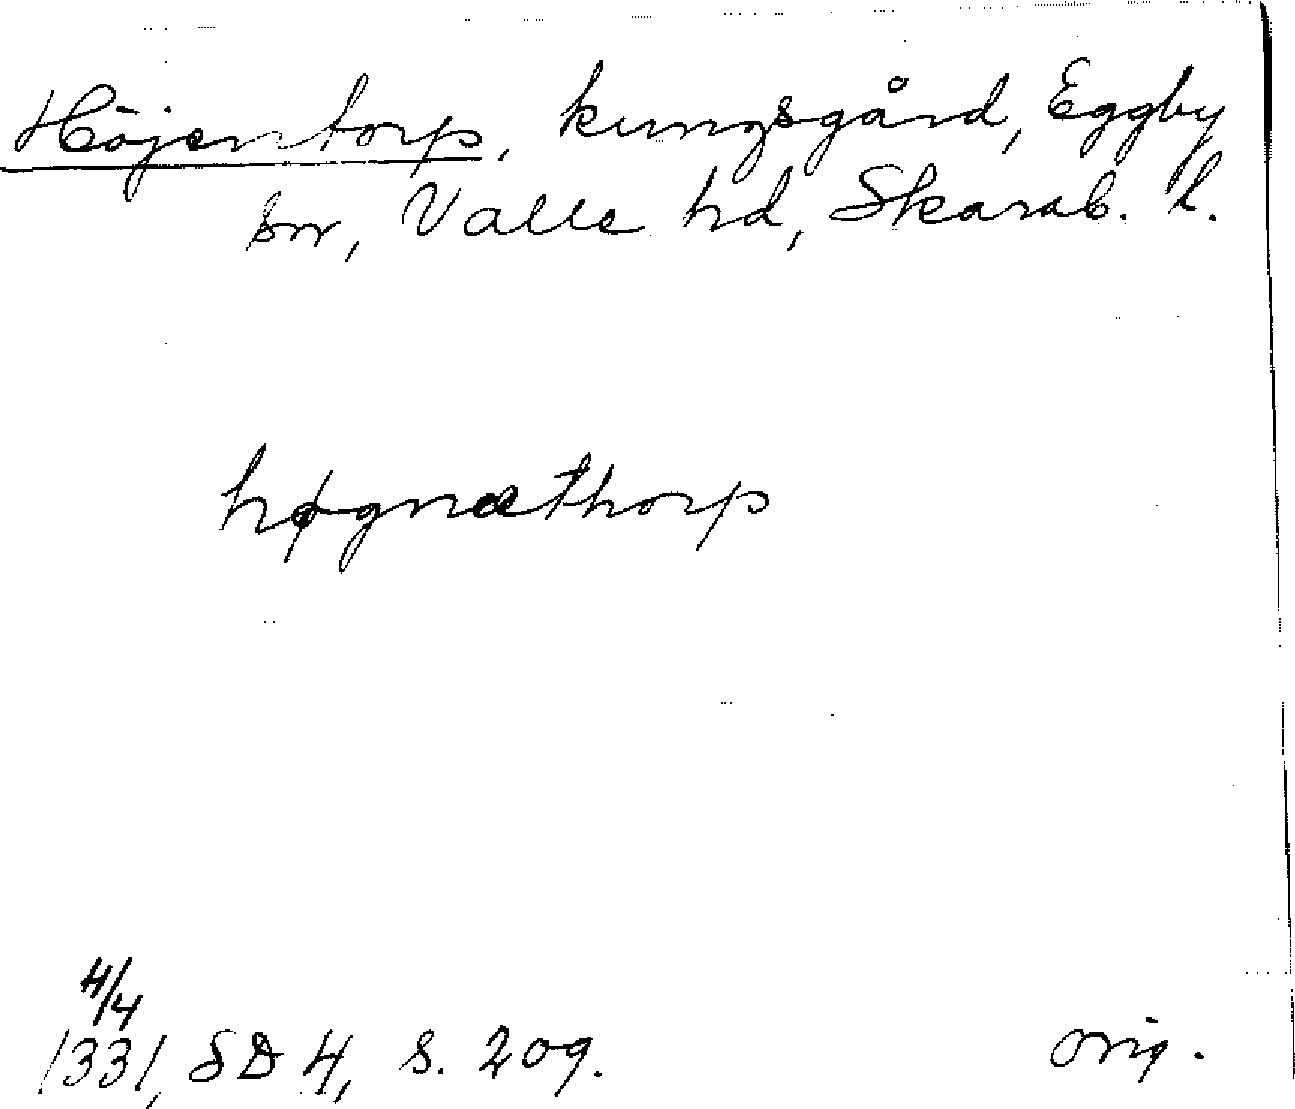 Höjentorp, kungsgård, Eggby
sn, Valle hd, Skarab. l.
høgnæthorp
4/4
1331, SD 4, s. 209.
orig.